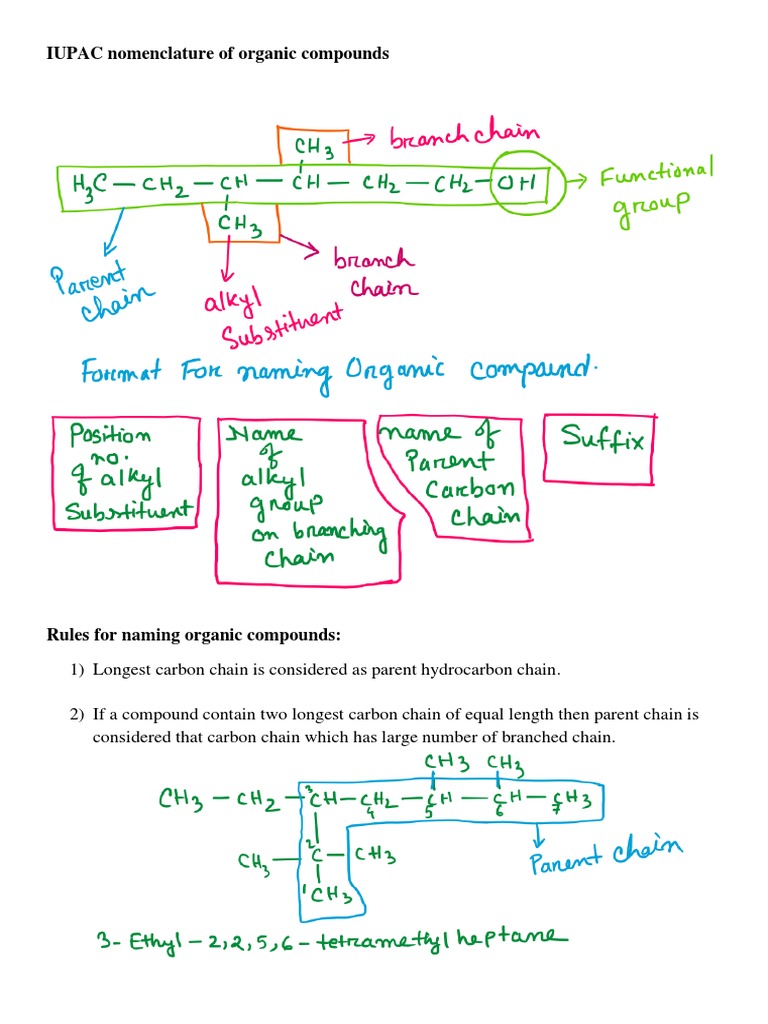 IUPAC nomenclature of organic compounds
CH3 → branch chain
H3C — CH2 — CH — CH — CH2 — CH2 — OH → Functional group
CH3
Parent chain
alkyl Substituent
branch chain
Format For naming Organic compound.
Position no. of alkyl Substituent
Name of alkyl group on branching chain
name of Parent Carbon Chain
Suffix
Rules for naming organic compounds:
1) Longest carbon chain is considered as parent hydrocarbon chain.
2) If a compound contain two longest carbon chain of equal length then parent chain is
considered that carbon chain which has large number of branched chain.
CH3 CH3
CH3 — CH2 — 3CH — CH2 — CH — CH — CH3
4 5 6 7
CH3 — 2C — CH3
1CH3
Parent chain
3- Ethyl — 2,2,5,6 — tetramethyl heptane